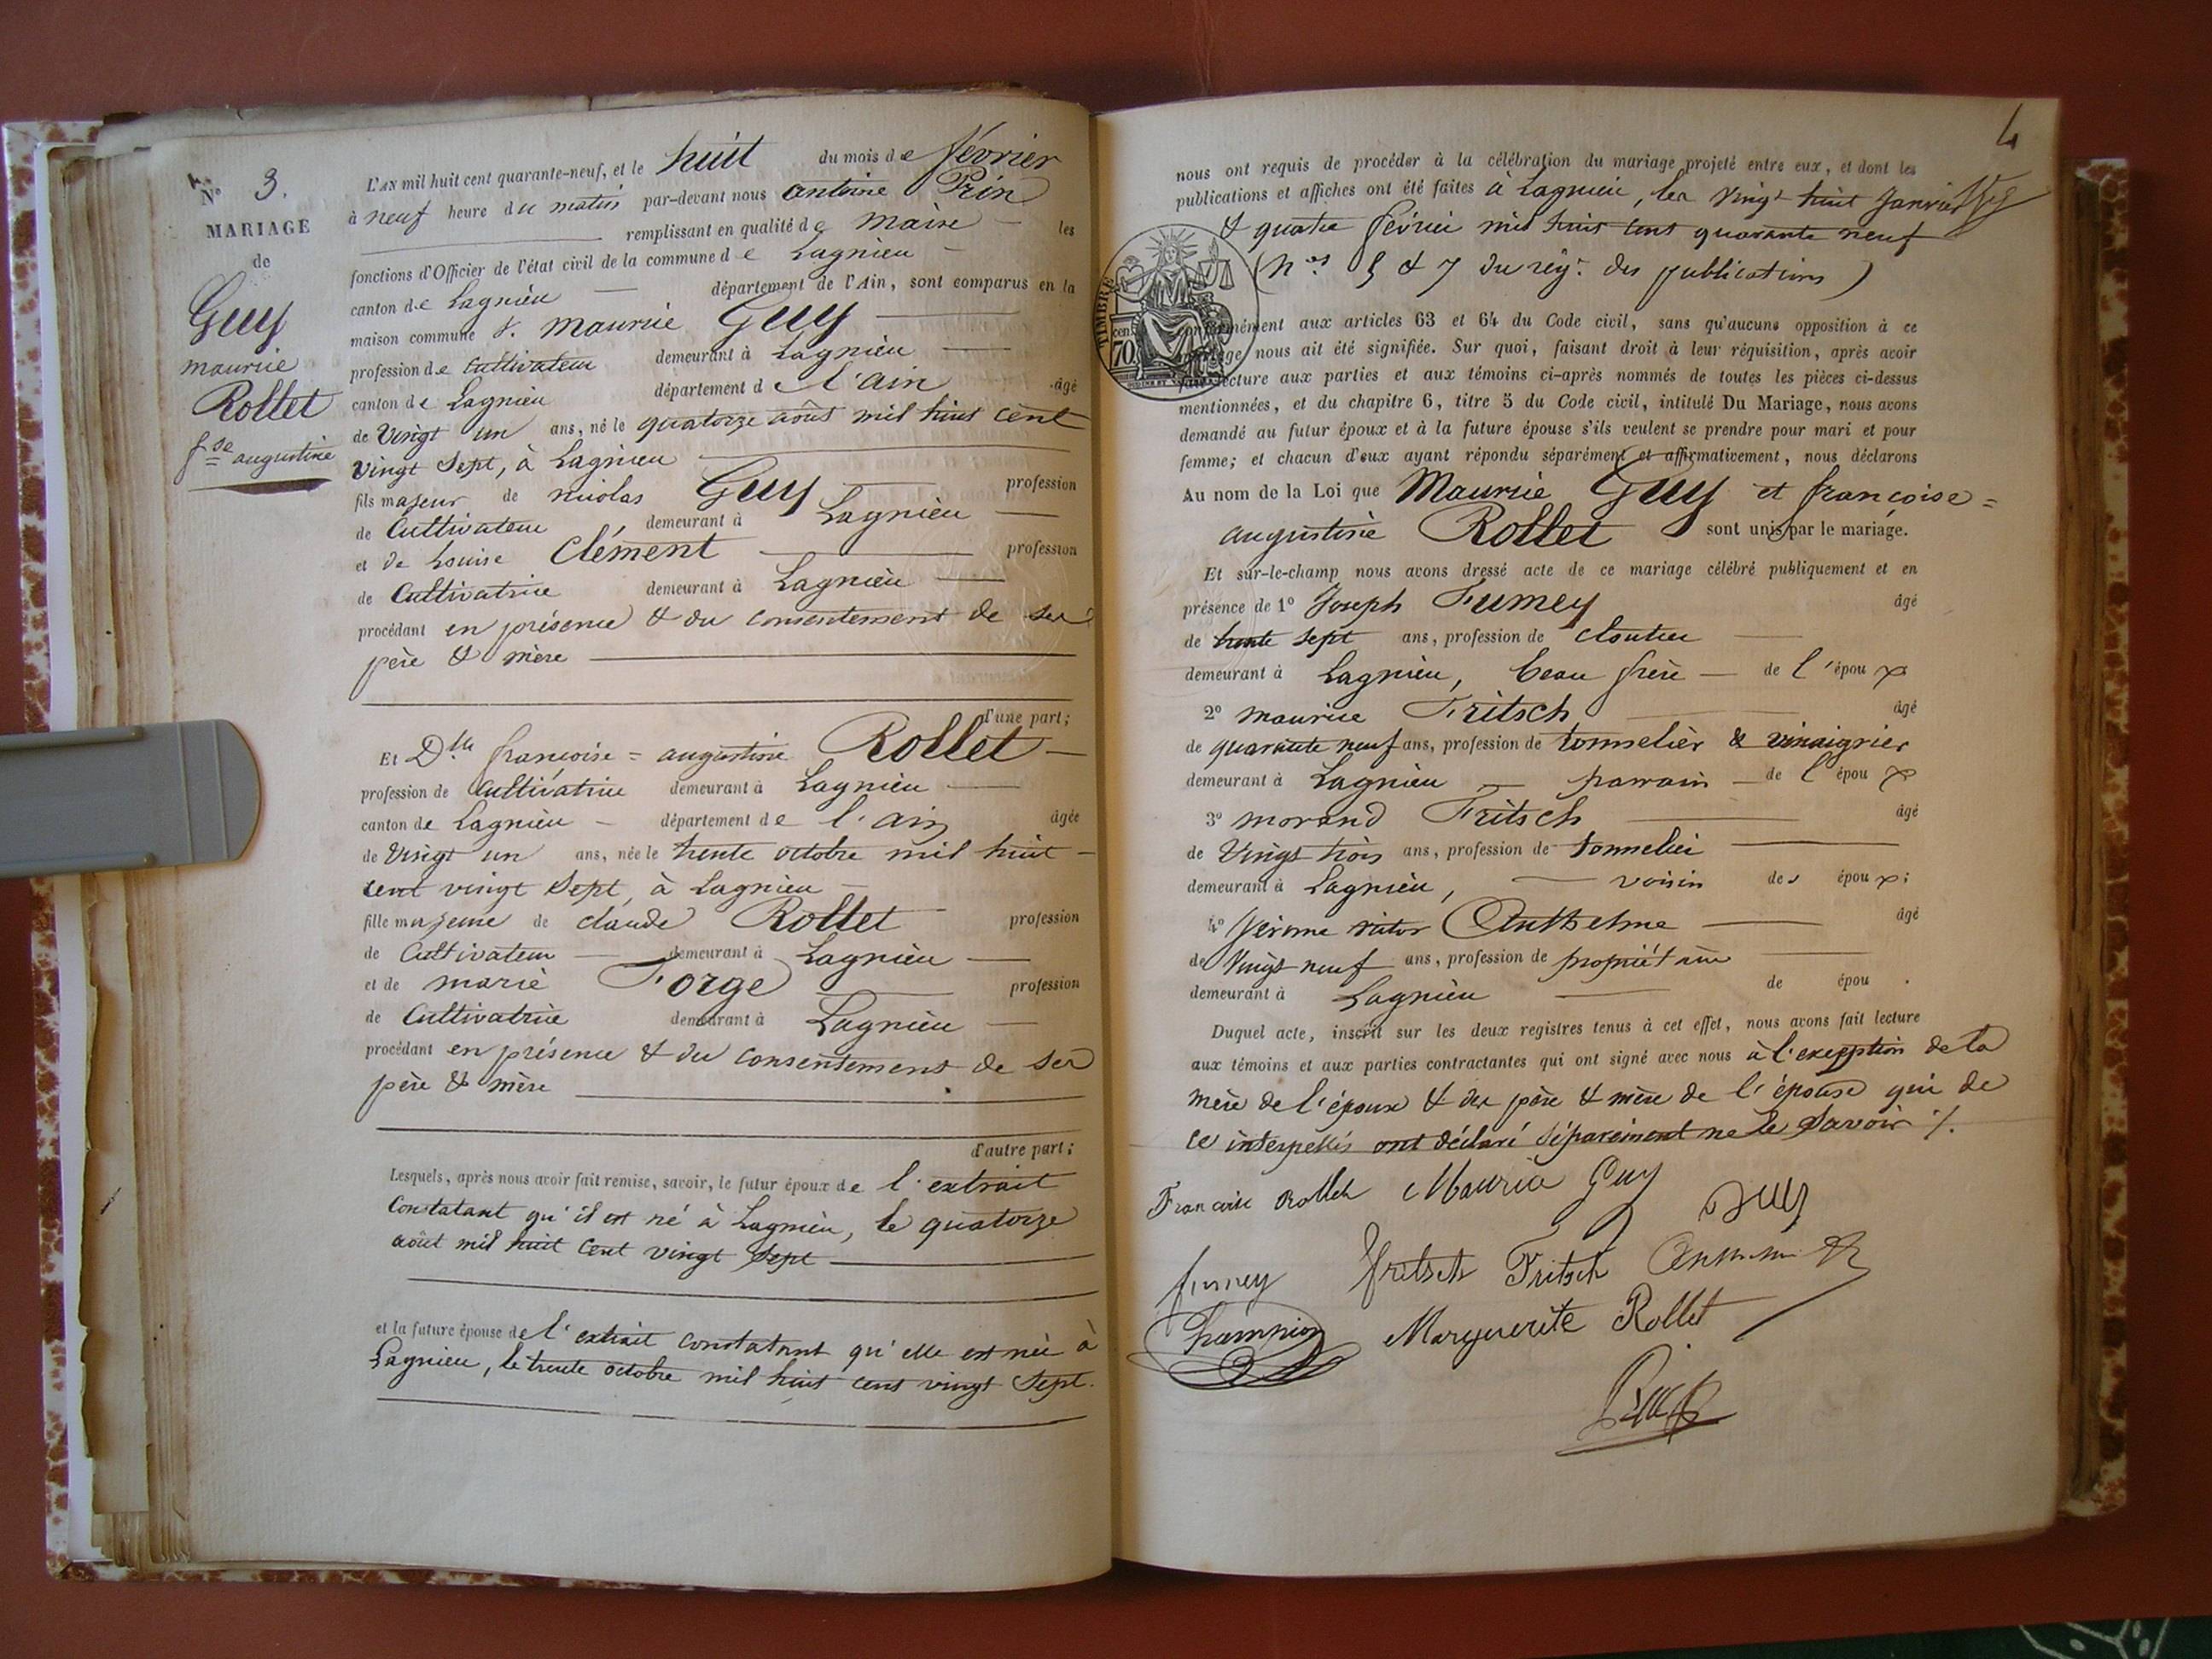 No 3.
MARIAGE
de
Guy
maurice
Rollet
fse augustine
L'AN mil huit cent quarante-neuf, et le huit du mois de février
à neuf heure du matin par-devant nous antoine Prin
remplissant en qualité de maire les
fonctions d'Officier de l'état civil de la commune de Lagnieu
canton de Lagnieu département de l'Ain, sont comparus en la
maison commune S. maurice Guy
profession de cultivateur demeurant à Lagnieu
canton de Lagnieu département de l'ain âgé
de vingt un ans, né le quatorze août mil huit cent
vingt sept, à Lagnieu
fils majeur de nicolas Guy profession
de Cultivateur demeurant à Lagnieu
et de Louise Clément profession
de Cultivatrice demeurant à Lagnieu
procédant en présence & du consentement de ses
père & mère
d'une part;
Et Dlle françoise = augustine Rollet
profession de Cultivatrice demeurant à Lagnieu
canton de Lagnieu département de l'ain âgée
de vingt un ans, née le trente octobre mil huit
cent vingt sept, à Lagnieu
fille majeure de claude Rollet profession
de Cultivateur demeurant à Lagnieu
et de marie Forge profession
de Cultivatrice demeurant à Lagnieu
procédant en présence & du consentement de ses
père & mère
d'autre part;
Lesquels, après nous avoir fait remise, savoir, le futur époux de l'extrait
constatant qu'il est né à Lagnieu, le quatorze
août mil huit cent vingt sept
et la future épouse de l'extrait constatant qu'elle est née à
Lagnieu, le trente octobre mil huit cent vingt sept.
4
nous ont requis de procéder à la célébration du mariage projeté entre eux, et dont les
publications et affiches ont été faites à Lagnieu, les vingt huit janvier
& quatre février mil huit cent quarante neuf
(nos 5 & 7 du regr. des publications)
TIMBRE
cent
70
conformément aux articles 63 et 64 du Code civil, sans qu'aucune opposition à ce
mariage nous ait été signifiée. Sur quoi, faisant droit à leur réquisition, après avoir
fait lecture aux parties et aux témoins ci-après nommés de toutes les pièces ci-dessus
mentionnées, et du chapitre 6, titre 5 du Code civil, intitulé Du Mariage, nous avons
demandé au futur époux et à la future épouse s'ils veulent se prendre pour mari et pour
femme; et chacun d'eux ayant répondu séparément et affirmativement, nous déclarons
Au nom de la Loi que Maurice Guy et françoise =
augustine Rollet sont unis par le mariage.
Et sur-le-champ nous avons dressé acte de ce mariage célébré publiquement et en
présence de 1o Joseph Fumey âgé
de trente sept ans, profession de cloutier
demeurant à Lagnieu, beau frère de l'époux
2o maurice Fritsch âgé
de quarante neuf ans, profession de tonnelier & vinaigrier
demeurant à Lagnieu parrain de l'époux
3o morand Fritsch âgé
de vingt trois ans, profession de tonnelier
demeurant à Lagnieu, voisin des époux;
4o Jérome victor Anthelme âgé
de vingt neuf ans, profession de propriétaire
demeurant à Lagnieu de épou .
Duquel acte, inscrit sur les deux registres tenus à cet effet, nous avons fait lecture
aux témoins et aux parties contractantes qui ont signé avec nous à l'exception de la
mère de l'époux & des père & mère de l'épouse qui de
ce interpellés ont déclaré séparément ne le savoir ./.
Francoise Rollet Maurice Guy Guy
fumey fritsch Fritsch
Champion Marguerite Rollet
Prin